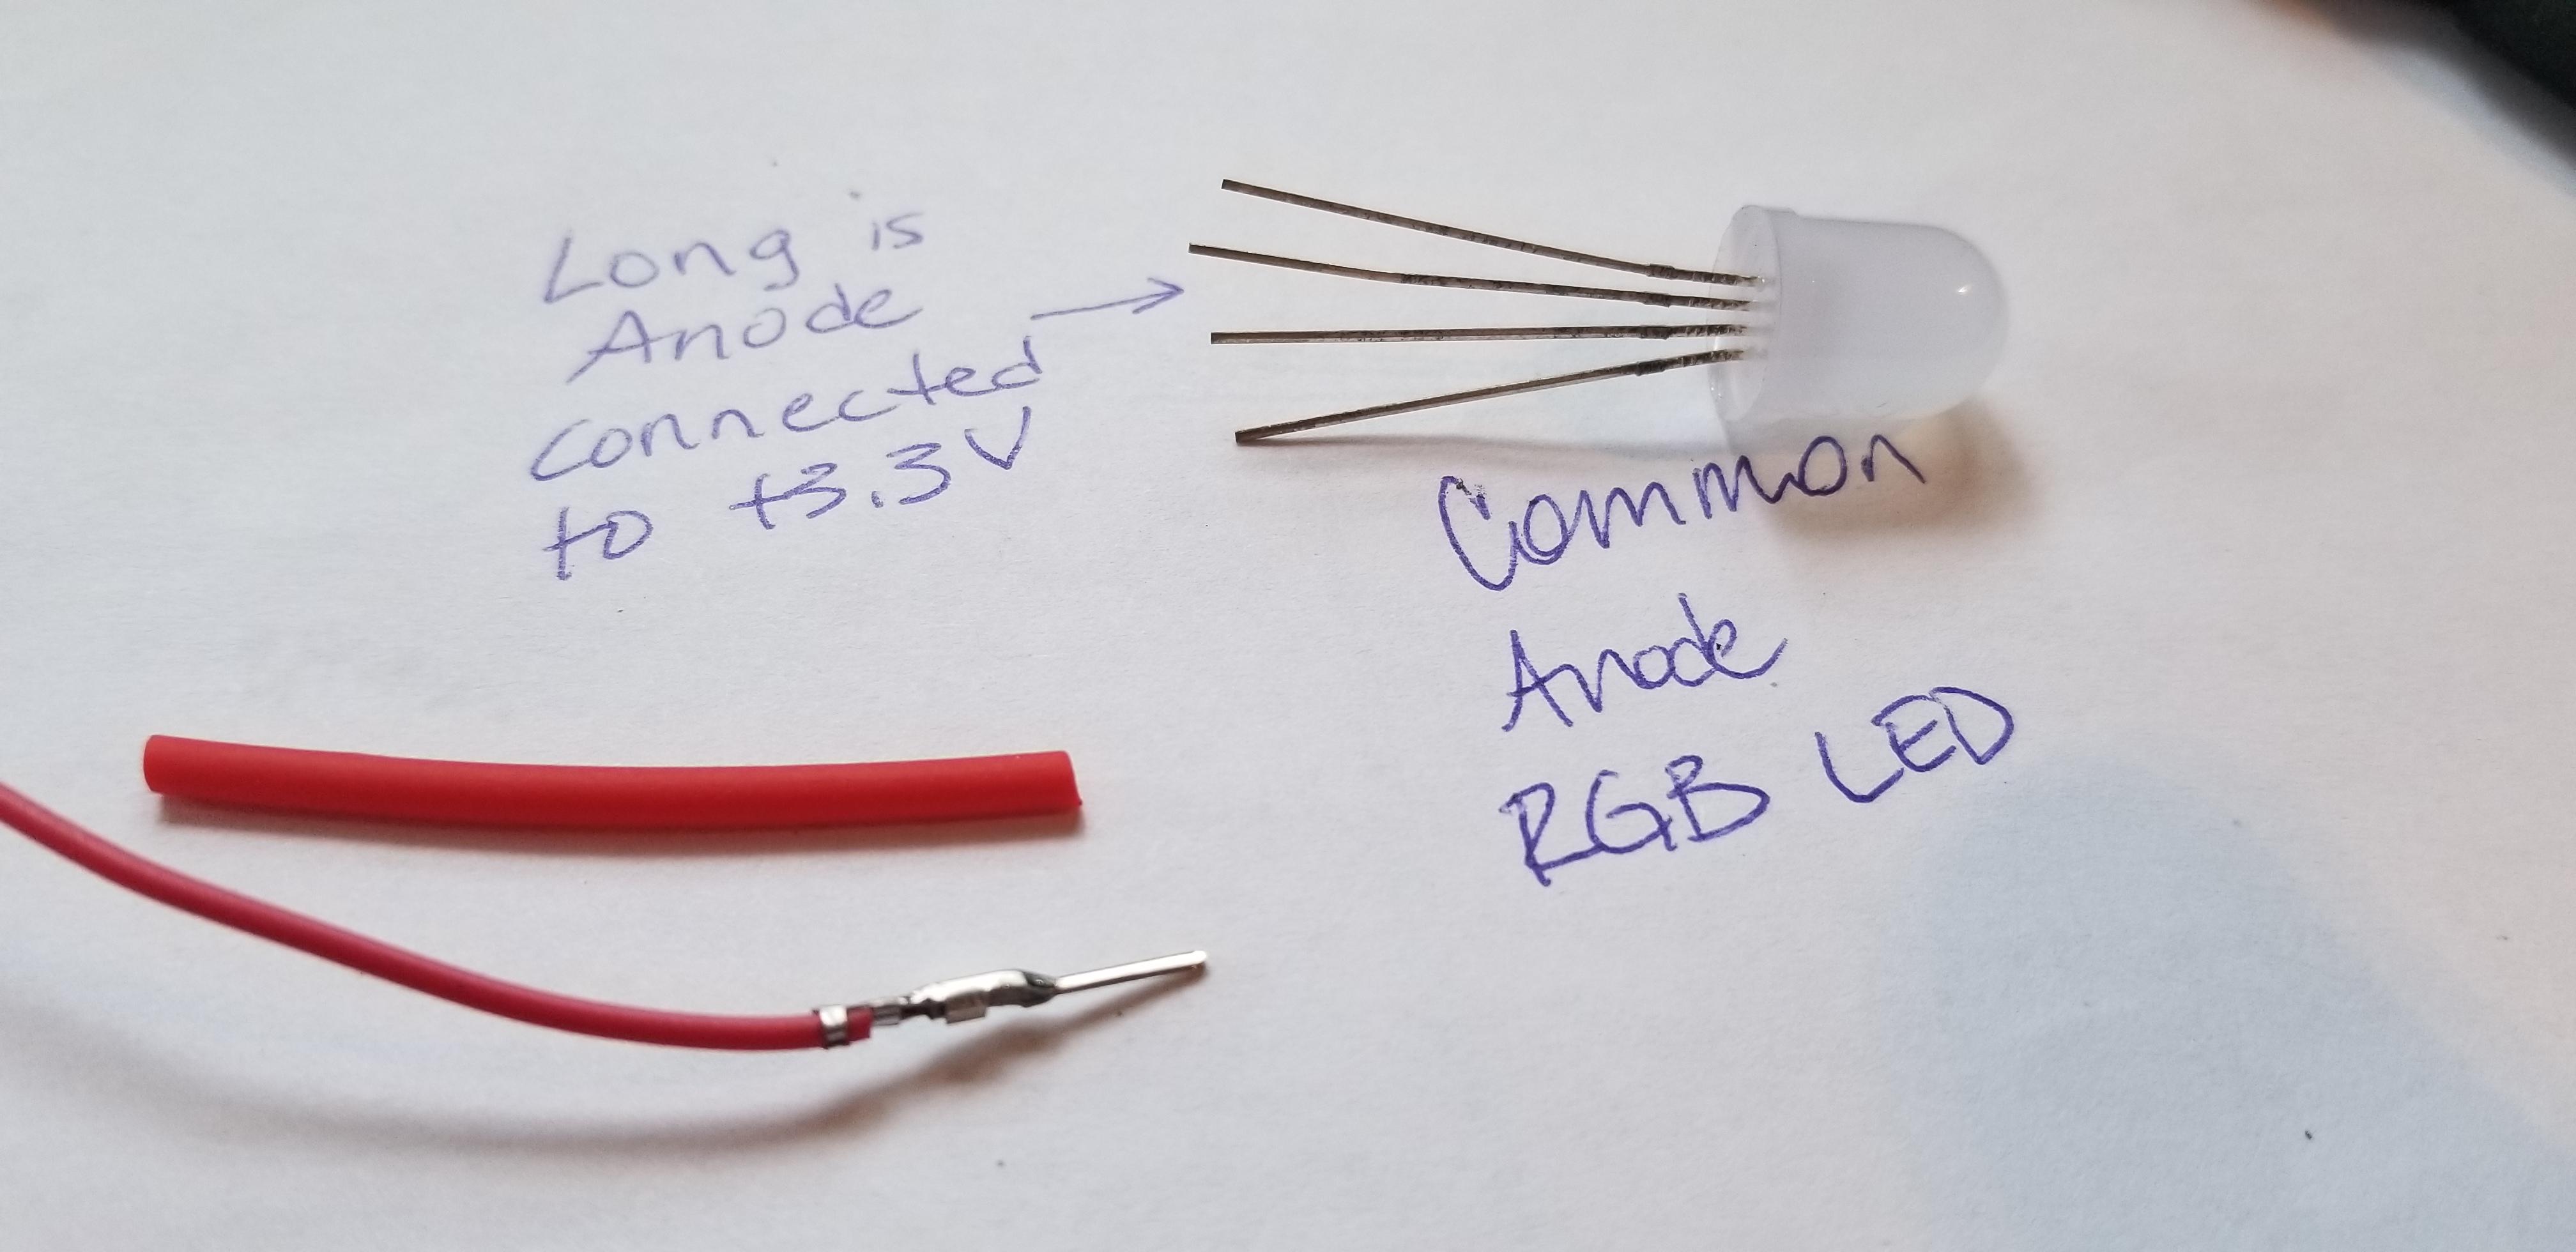 Long is
Anode
connected
to +3.3V
Common
Anode
RGB LED